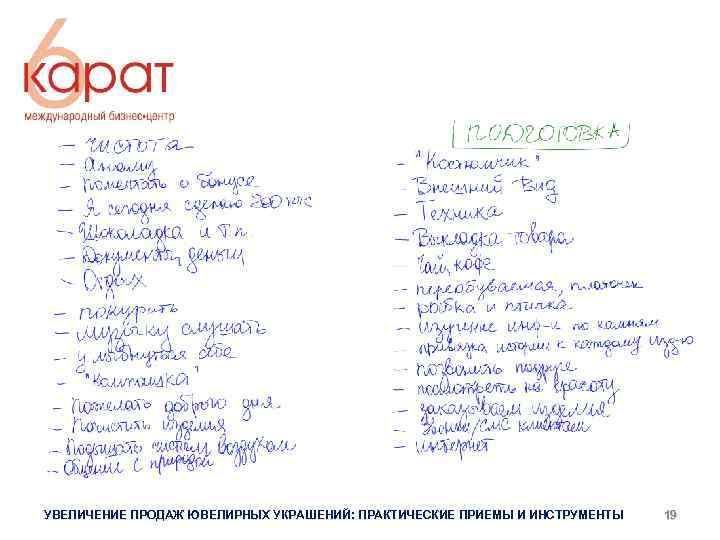 6 карат
международный бизнес•центр
ПОДГОТОВКА
– Чистота
– Анализ
– Помечтать о бонусе
– Я сегодня сделаю 200 тык
– Шоколадка и Тп
– Документы, деньги
– Отдых
– покурить
– музыку слушать
– улыбнуться себе
– "Комп
– Пожелать доброго дня
– Почистить изделия
– Подышать чистым воздухом
– Общение с природой
– "Костюмчик"
– Внешний вид
– Техника
– Выкладка товара
– Чай, кофе
– переобуваемся, платочек
– рыбка и птичка
– изучение инф-и по камням
– привязка истории к каждому изд-ю
– позвонить подруге
– посмотреть на красоту
– заказываем изделия
– Звонки/СМС клиентам
– интернет
УВЕЛИЧЕНИЕ ПРОДАЖ ЮВЕЛИРНЫХ УКРАШЕНИЙ: ПРАКТИЧЕСКИЕ ПРИЕМЫ И ИНСТРУМЕНТЫ
19